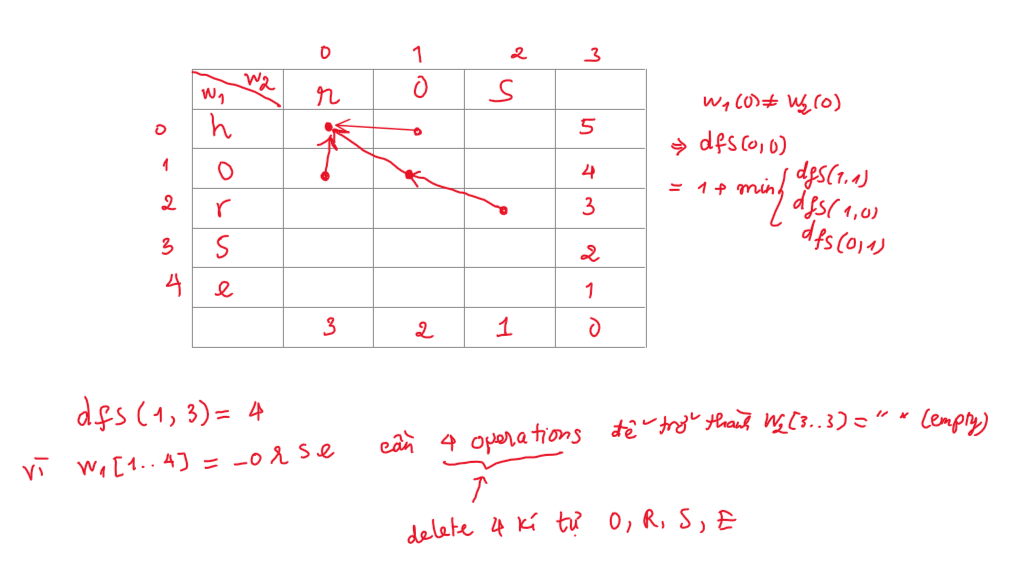 0 1 2 3
w1 w2 r O S
0 h 5
1 O 4
2 r 3
3 S 2
4 e 1
3 2 1 0
w1(0) ≠ w2(0)
⇒ dfs(0,0)
= 1 + min { dfs(1,1)
dfs(1,0)
dfs(0,1)
dfs(1,3) = 4
vì w1[1..4] = -orse cần 4 operations để trở thành w2[3..3] = " " (empty)
delete 4 kí tự O, R, S, E